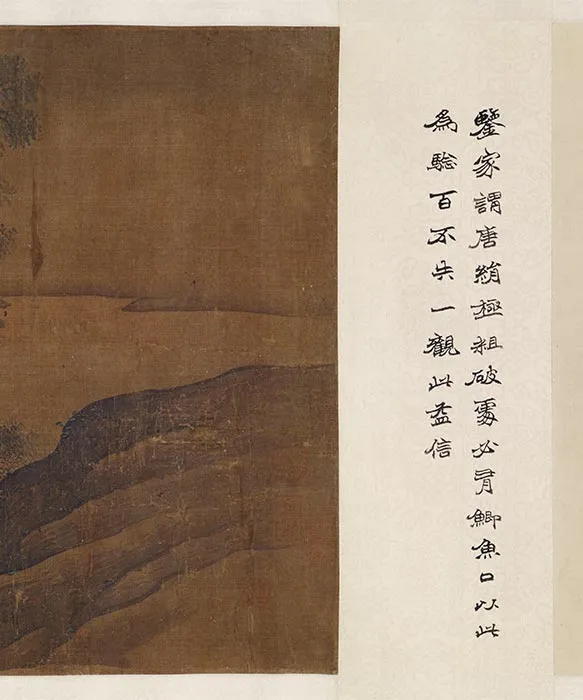 鑒家謂唐絹極粗破處必有鯽魚口以此
為驗百不失一觀此益信